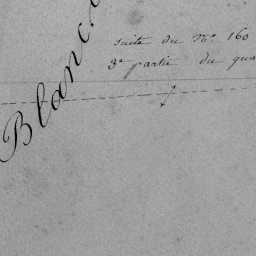 Blanc
suite du N.º 160
3ᵉ partie du qua